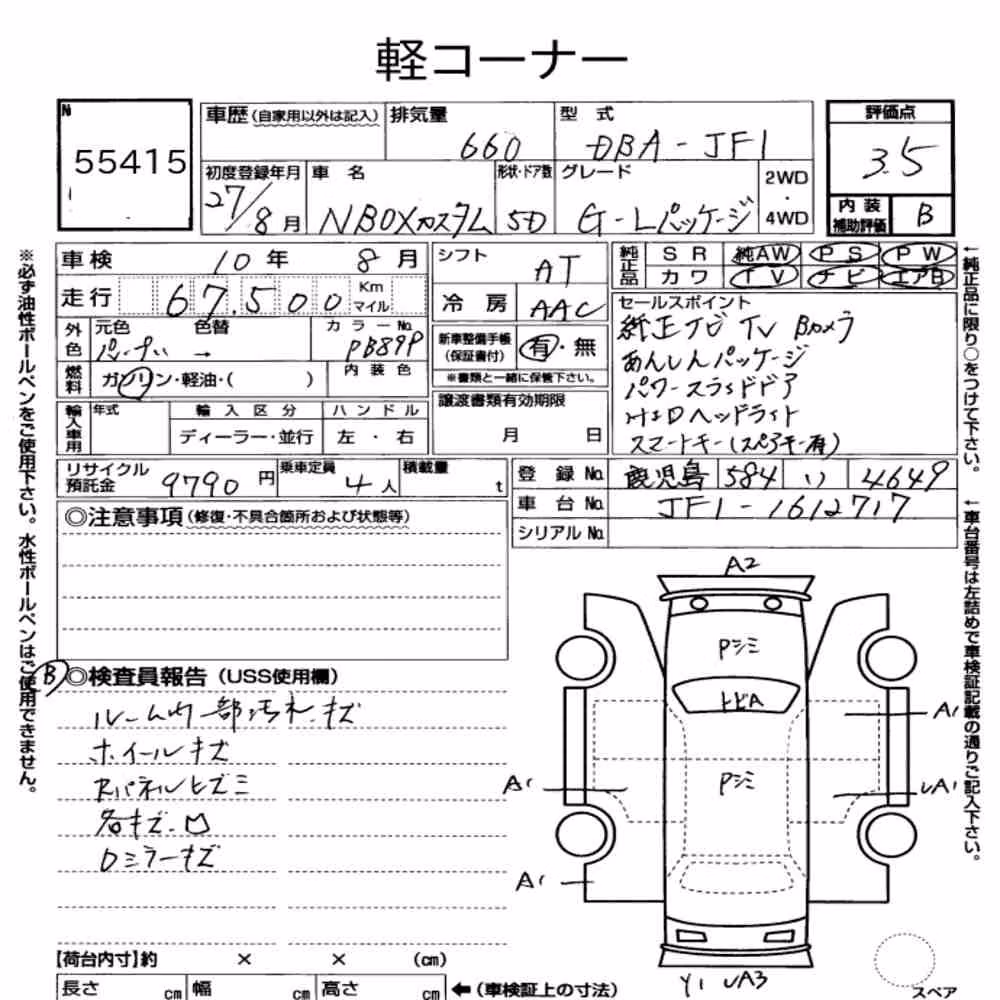 軽コーナー
N
55415
車歴(自家用以外は記入)
排気量
660
型式
DBA-JF1
評価点
3.5
初度登録年月
27/8月
車名
NBOXカスタム
形状・ドア数
5D
グレード
G-Lパッケージ
2WD
・
4WD
内装
補助評価
B
車検 10年 8月
シフト
AT
純正品
SR 純AW PS PW
カワ TV ナビ エアB
走行 67,500 Km
マイル
冷房 AAC
セールスポイント
純正ナビ TV Bカメラ
あんしんパッケージ
パワースライドドア
HIDヘッドライト
スマートキー(スペアキー有)
外色
元色
色替
→
カラーNo.
PB89P
新車整備手帳
(保証書付)
有・無
※書類と一緒に保管下さい。
燃料
ガソリン・軽油・( )
内装色
輸入車用
年式
輸入区分
ハンドル
ディーラー・並行
左・右
譲渡書類有効期限
月 日
リサイクル
預託金
9790円
乗車定員
4人
積載量
t
登録No. 鹿児島 584 い 4649
車台No. JF1-1612717
シリアルNo.
◎注意事項(修復・不具合箇所および状態等)
B
◎検査員報告(USS使用欄)
ルーム内一部汚れ、キズ
ホイールキズ
Rパネルヒズミ
各キズ、凹
Dミラーキズ
A2
Pシミ
トビA
A1
Pシミ
A1
UA1
A1
Y1 UA3
スペア
【荷台内寸】約 × × (cm)
長さ cm 幅 cm 高さ cm ←(車検証上の寸法)
※必ず油性ボールペンをご使用下さい。水性ボールペンはご使用できません。
←純正品に限り○をつけて下さい。
←車台番号は左詰めで車検証記載の通りご記入下さい。